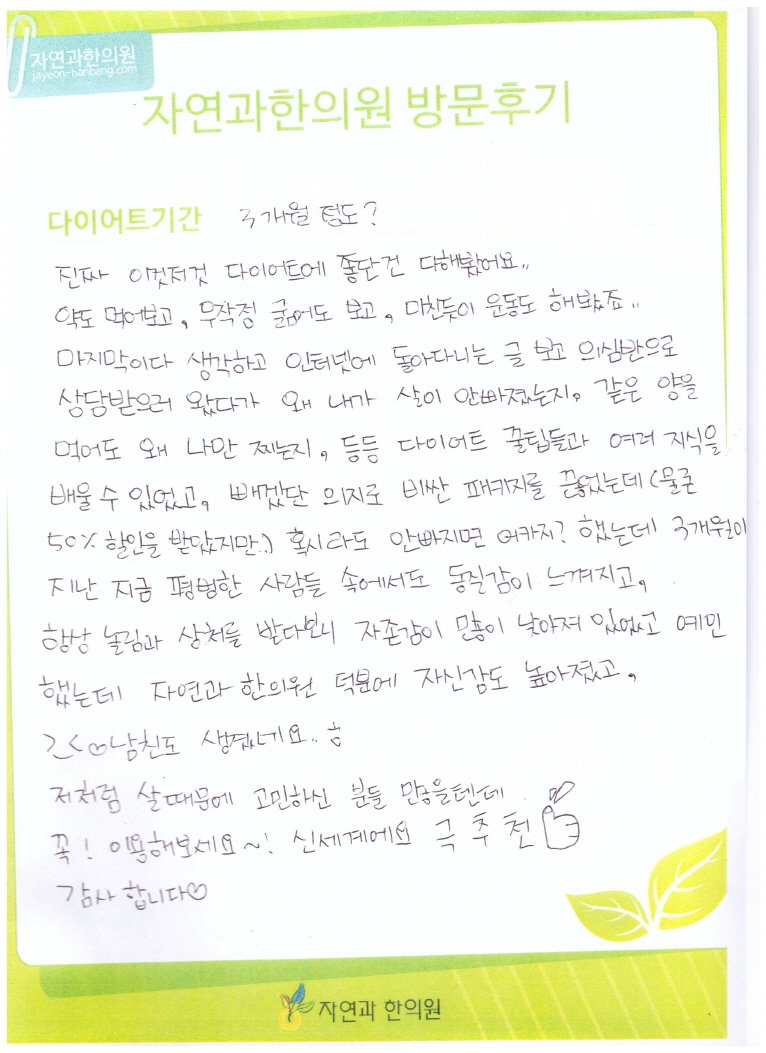 자연과한의원
jayeon-hanbang.com
자연과한의원 방문후기
다이어트기간 3개월 정도?
진짜 이것저것 다이어트에 좋단건 다해봤어요..
약도 먹어보고, 무작정 굶어도 보고, 미친듯이 운동도 해봤죠..
마지막이다 생각하고 인터넷에 돌아다니는 글 보고 의심반으로
상담받으러 왔다가 왜 내가 살이 안빠졌는지, 같은 양을
먹어도 왜 나만 찌는지, 등등 다이어트 꿀팁들과 여러 지식을
배울 수 있었고, 빼겠단 의지로 비싼 패키지를 끊었는데 (물론
50% 할인을 받았지만.) 혹시라도 안빠지면 어카지? 했는데 3개월이
지난 지금 평범한 사람들 속에서도 동질감이 느껴지고,
항상 놀림과 상처를 받다보니 자존감이 많이 낮아져 있었고 예민
했는데 자연과한의원 덕분에 자신감도 높아졌고,
>< ♡남친도 생겼네요.. ㅎ
저처럼 살때문에 고민하신 분들 많을텐데
꼭! 이용해보세요~! 신세계에요 극 추 천
감사합니다♡
자연과 한의원